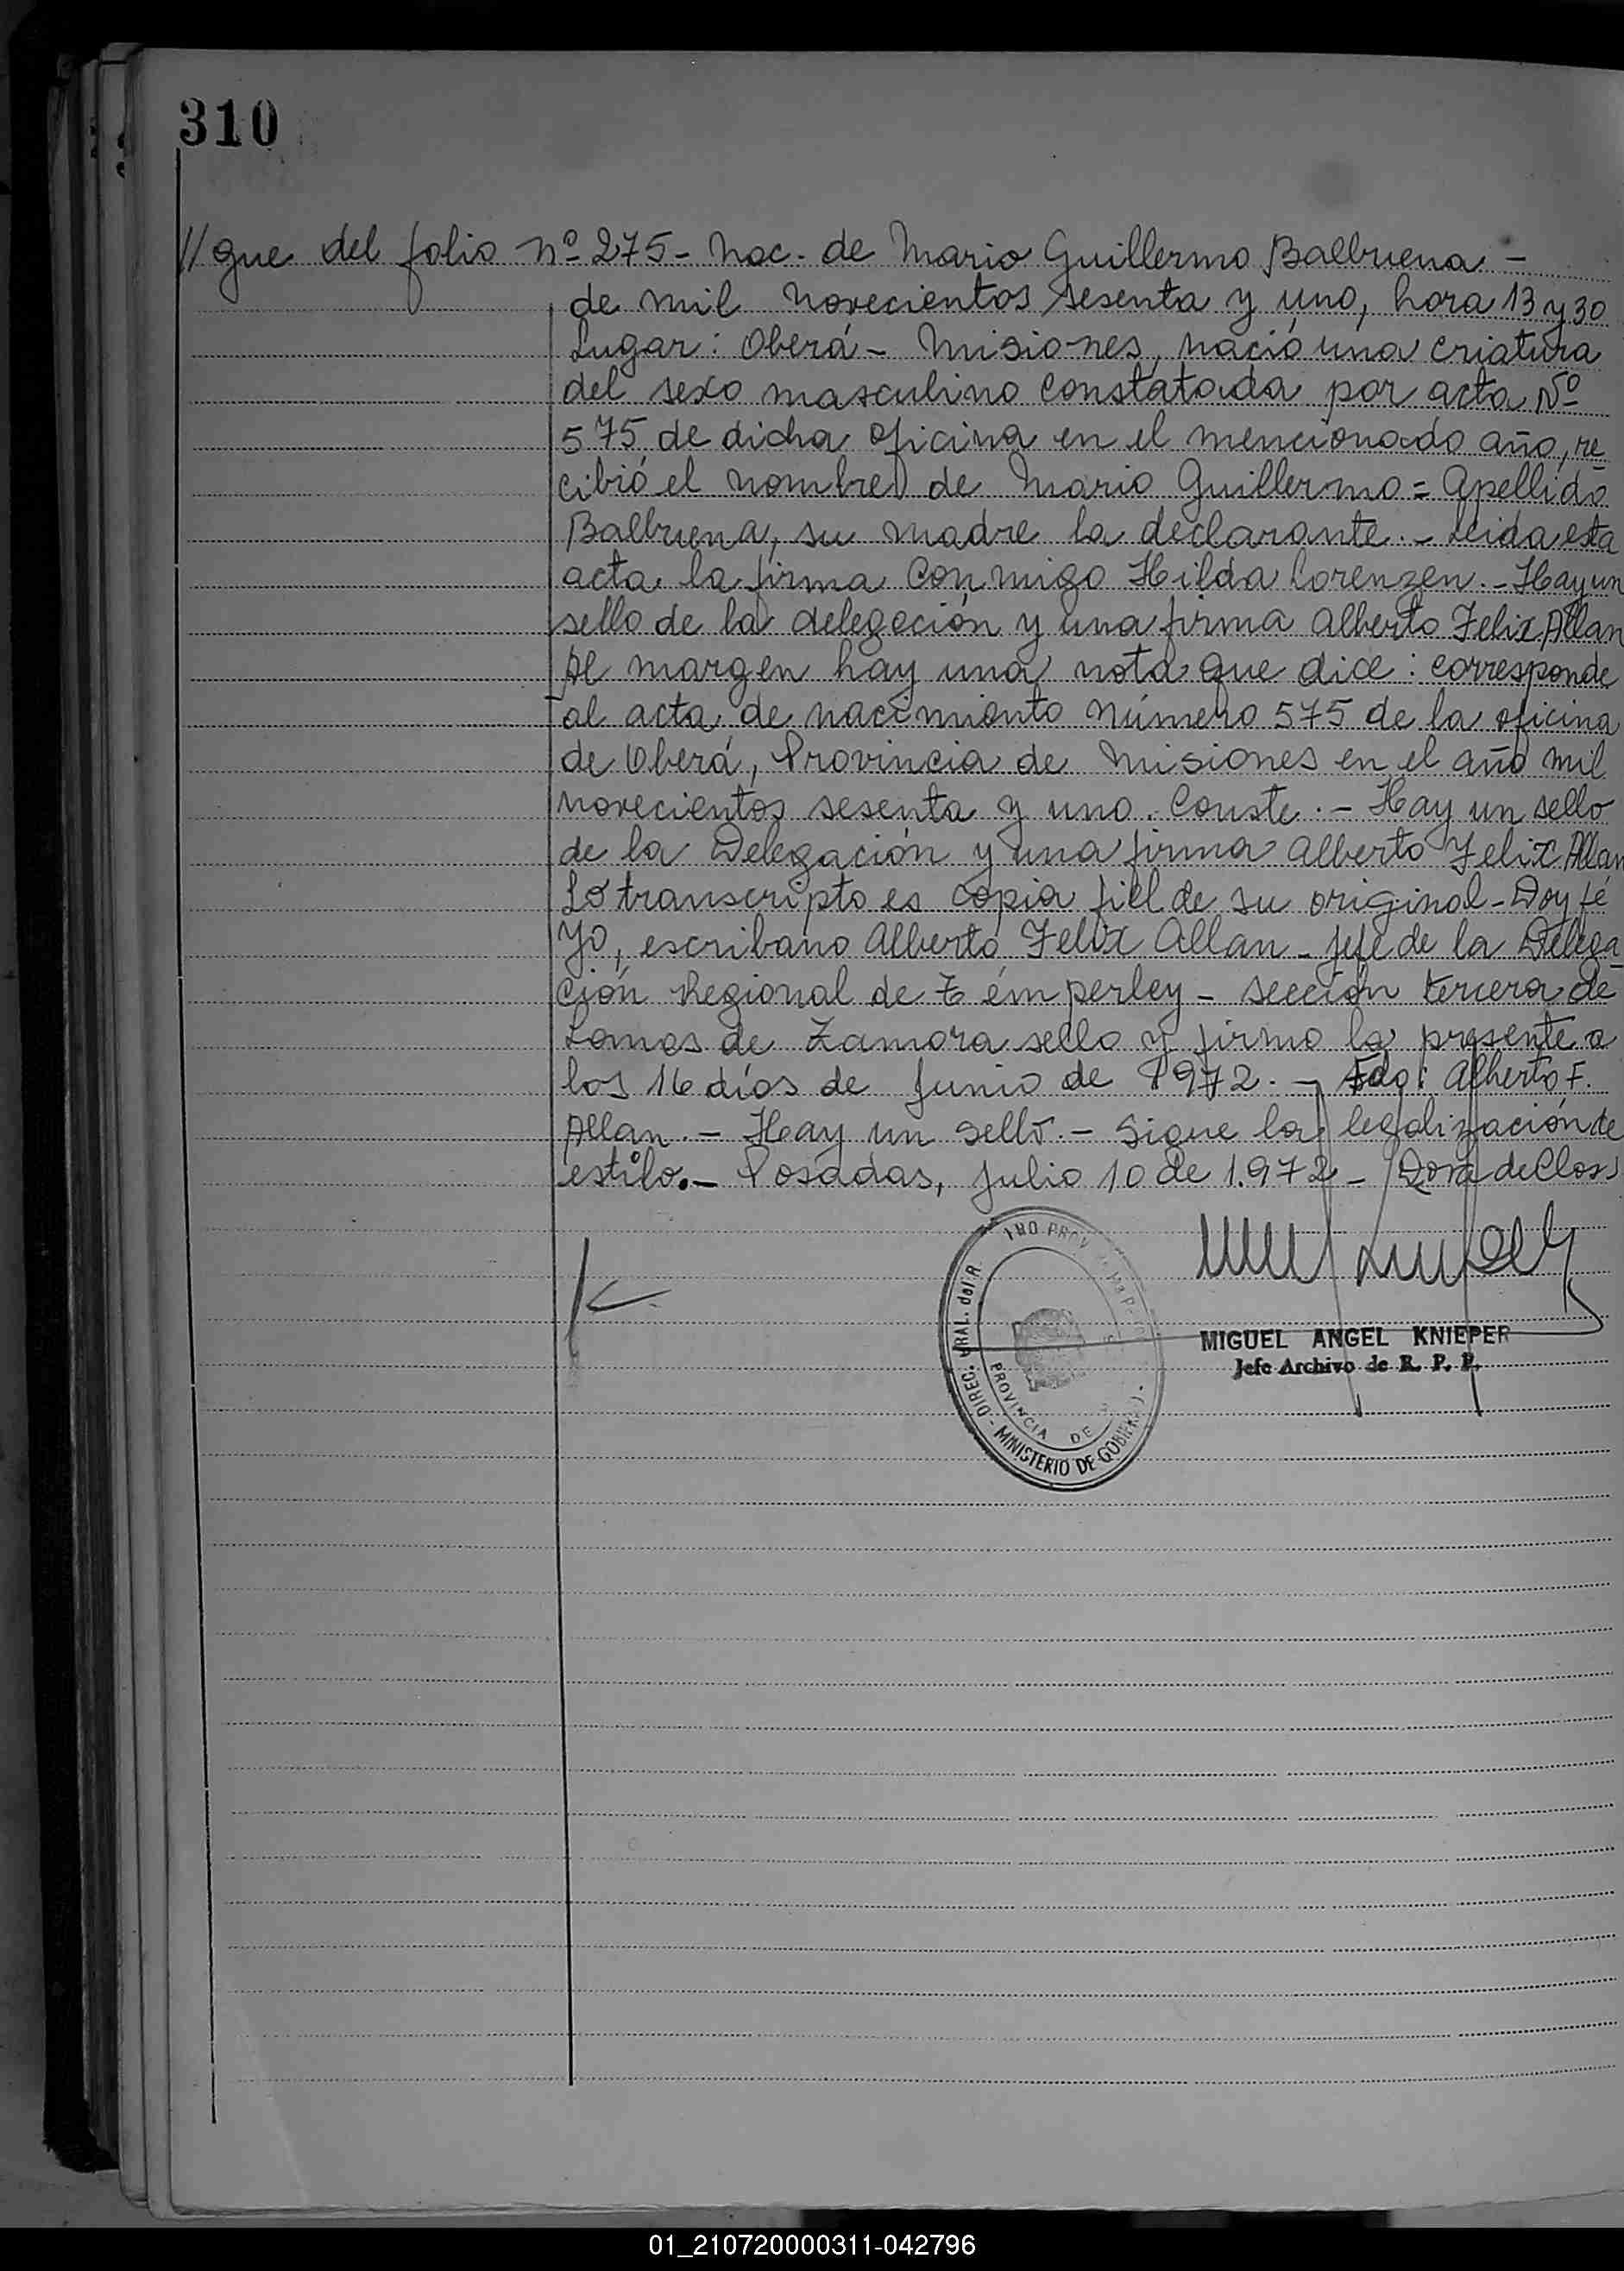 310
//gue del folio nº 275- Nac. de Mario Guillermo Balbuena -
de mil novecientos sesenta y uno, hora 13 y 30
Lugar: Oberá - Misiones, nació una criatura
del sexo masculino constatada por acta Nº
575 de dicha oficina en el mencionado año, re
cibió el nombre de Mario Guillermo = Apellido
Balbuena, su madre la declarante.- Leida esta
acta la firma conmigo Hilda Lorenzen.- Hay un
sello de la delegación y una firma Alberto Felix Allan
Al margen hay una nota que dice: corresponde
al acta de nacimiento número 575 de la oficina
de Oberá, Provincia de Misiones en el año mil
novecientos sesenta y uno. Conste.- Hay un sello
de la Delegación y una firma Alberto Felix Allan
Lo transcripto es copia fiel de su original - Doy fé
Yo, escribano Alberto Felix Allan - jefe de la Delega
ción Regional de Témperley - sección tercera de
Lomas de Zamora sello y firmo la presente a
los 16 días de Junio de 1972.- Fdo: Alberto F.
Allan.- Hay un sello.- Sigue la legalización de
estilo.- Posadas, Julio 10 de 1.972 - Dora de Closs
DIREC. GRAL. del R.
MINISTERIO DE GOBIERNO
PROVINCIA DE
MIGUEL ANGEL KNIEPER
Jefe Archivo de R. P. P.
01_210720000311-042796